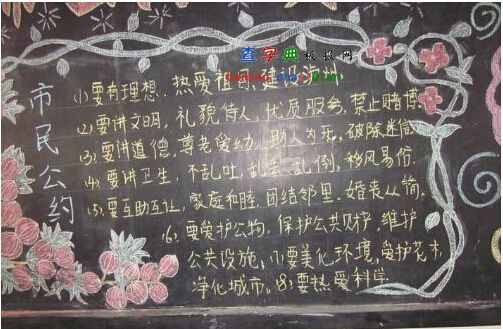 查字典板报网
市民公约
(1)要有理想、热爱祖国,建设泸州
(2)要讲文明,礼貌待人,优质服务,禁止赌博
(3)要讲道德,尊老爱幼,助人为乐,破除迷信
(4)要讲卫生,不乱吐,乱丢,乱倒,移风易俗.
(5)要互助互让,家庭和睦,团结邻里,婚丧从简,
(6)要爱护公物,保护公共财产,维护
公共设施,(7)要美化环境,爱护花木,
净化城市。(8)要热爱科学